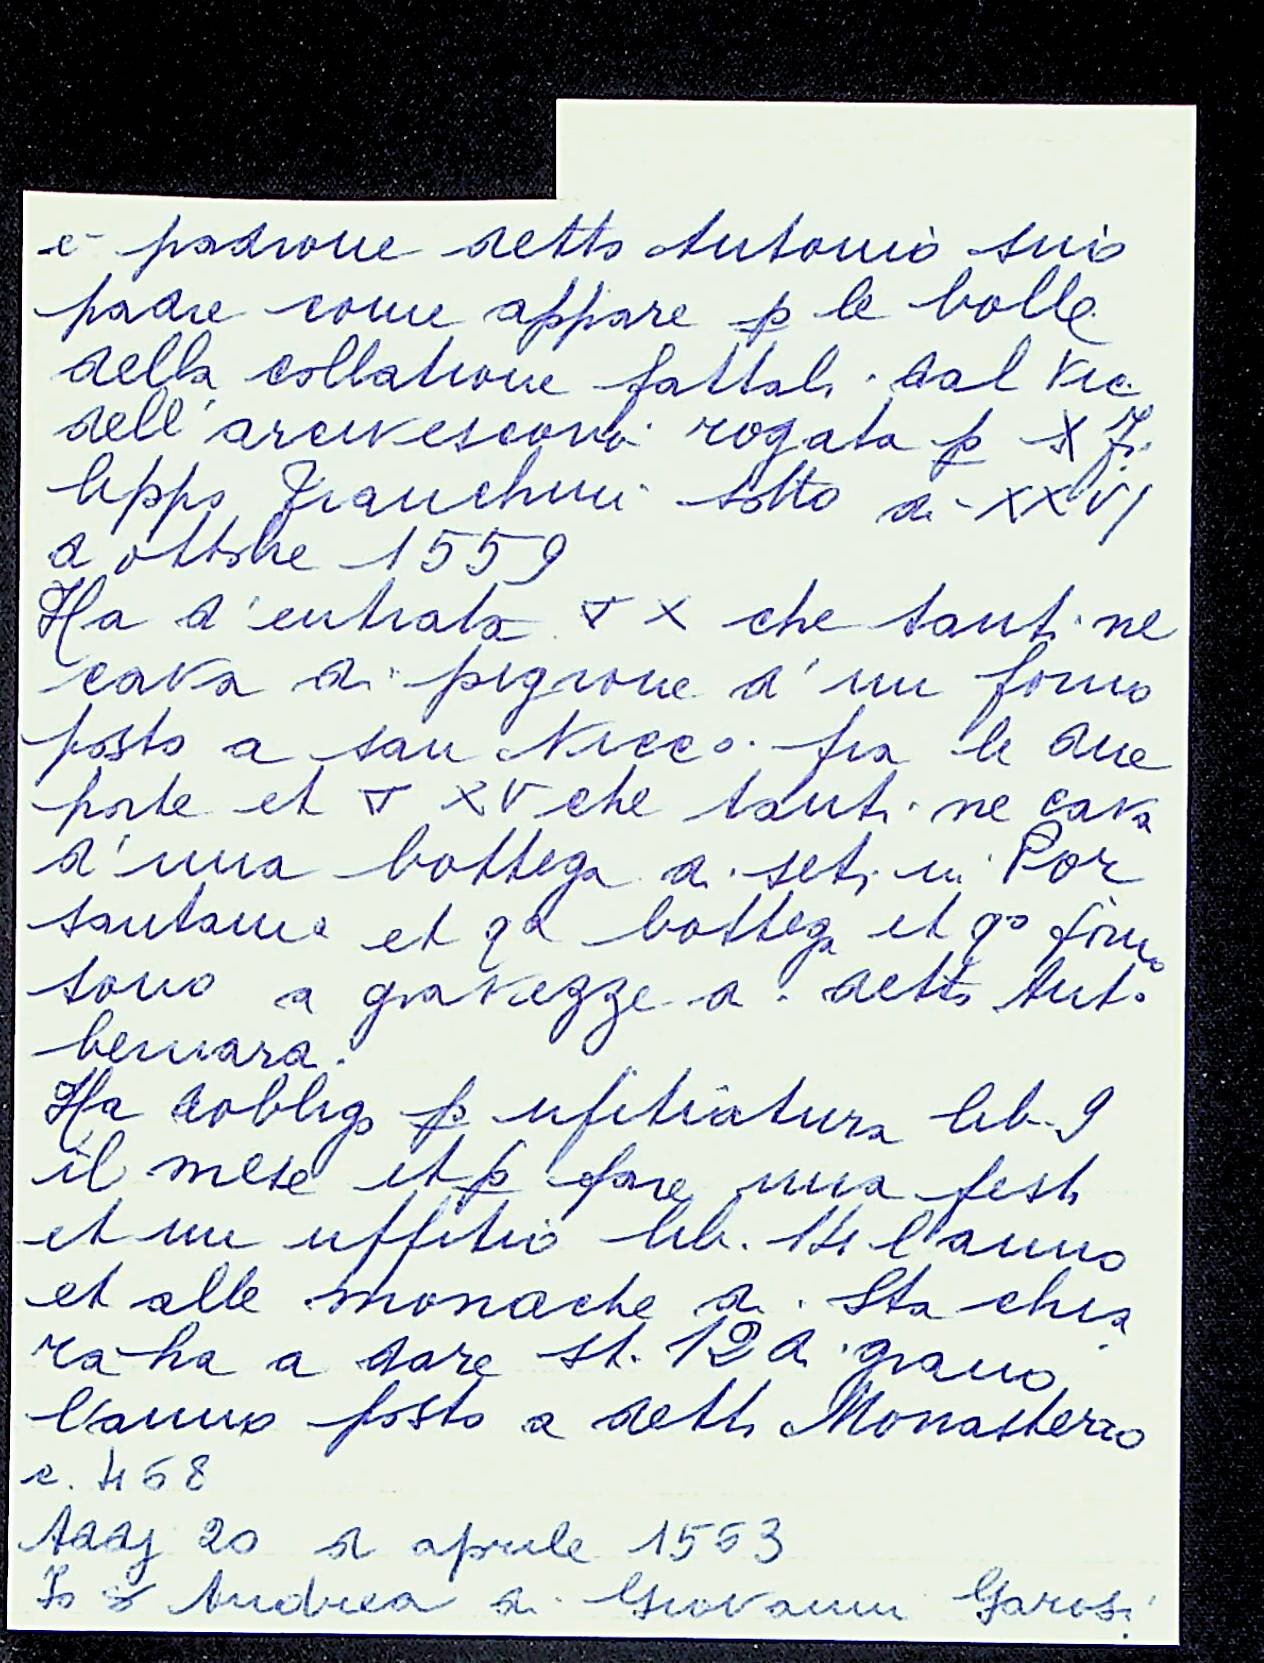 è padrone detto Antonio suo
padre come appare p le bolle
della collatione fattali dal Vic.
dell'arcivescovo rogata p S Fi
lippo Franchini sotto di XXVI
d ottobre 1559
Ha d'entrata ∇ X che tanti ne
cava di pigione d'un forno
posto a san Nicco. fra le due
porte et ∇ XV che tanti ne cava
d'una bottega di seti in Por
santamª et qª bottega et qº forno
sono a gravezze di detto Antº
bernardi
Ha dobbligo p ufitiatura lib. 9
il mese et p fare una festa
et un uffitio lib. 14 l'anno
et alle monache di Sta chia
ra ha a dare st. 12 di grano
l'anno posto a detto Monasterio
c. 468
Addj 20 d aprile 1563
Io Andrea di Giovanni